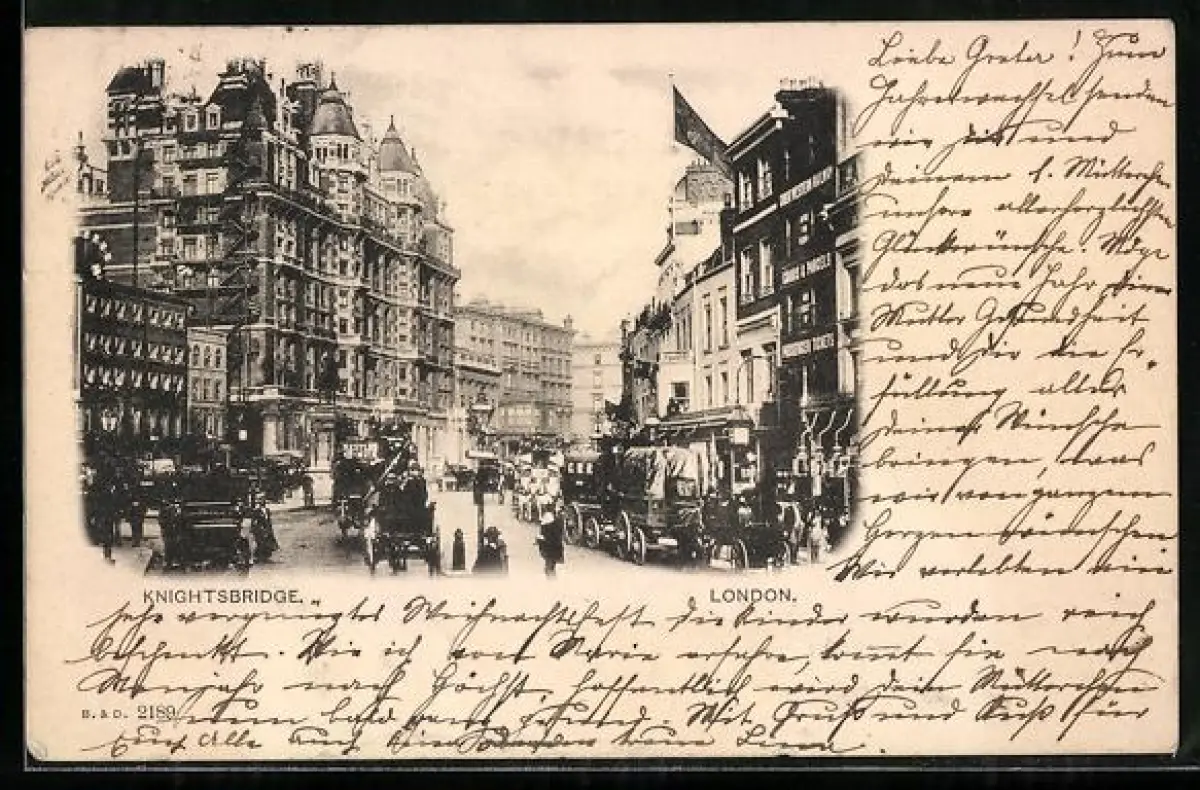 Liebe Greter! Zum
Jahreswechsel senden
wir dir und
deinem l. Mütterchen
unsere allerherzlichsten
Glückwünsche. Möge
das neue Jahr deiner
Mutter Gesundheit
und dir die Er-
füllung aller
deiner Wünsche
bringen, was
wir von ganzem
Herzen wünschen
Wir verlebten ein
KNIGHTSBRIDGE.
LONDON.
sehr vergnügtes Weihnachtsfest die Kinder wurden reich
beschenkt. Wie ich von Marie erfahre, kom̅t sie nach
Neujahr nach Höchst, hoffentlich wird dein Mütterchen
nun bald ganz gesund. Mit Gruß und Kuß für
B. & D. 2189
Euch Alle auch